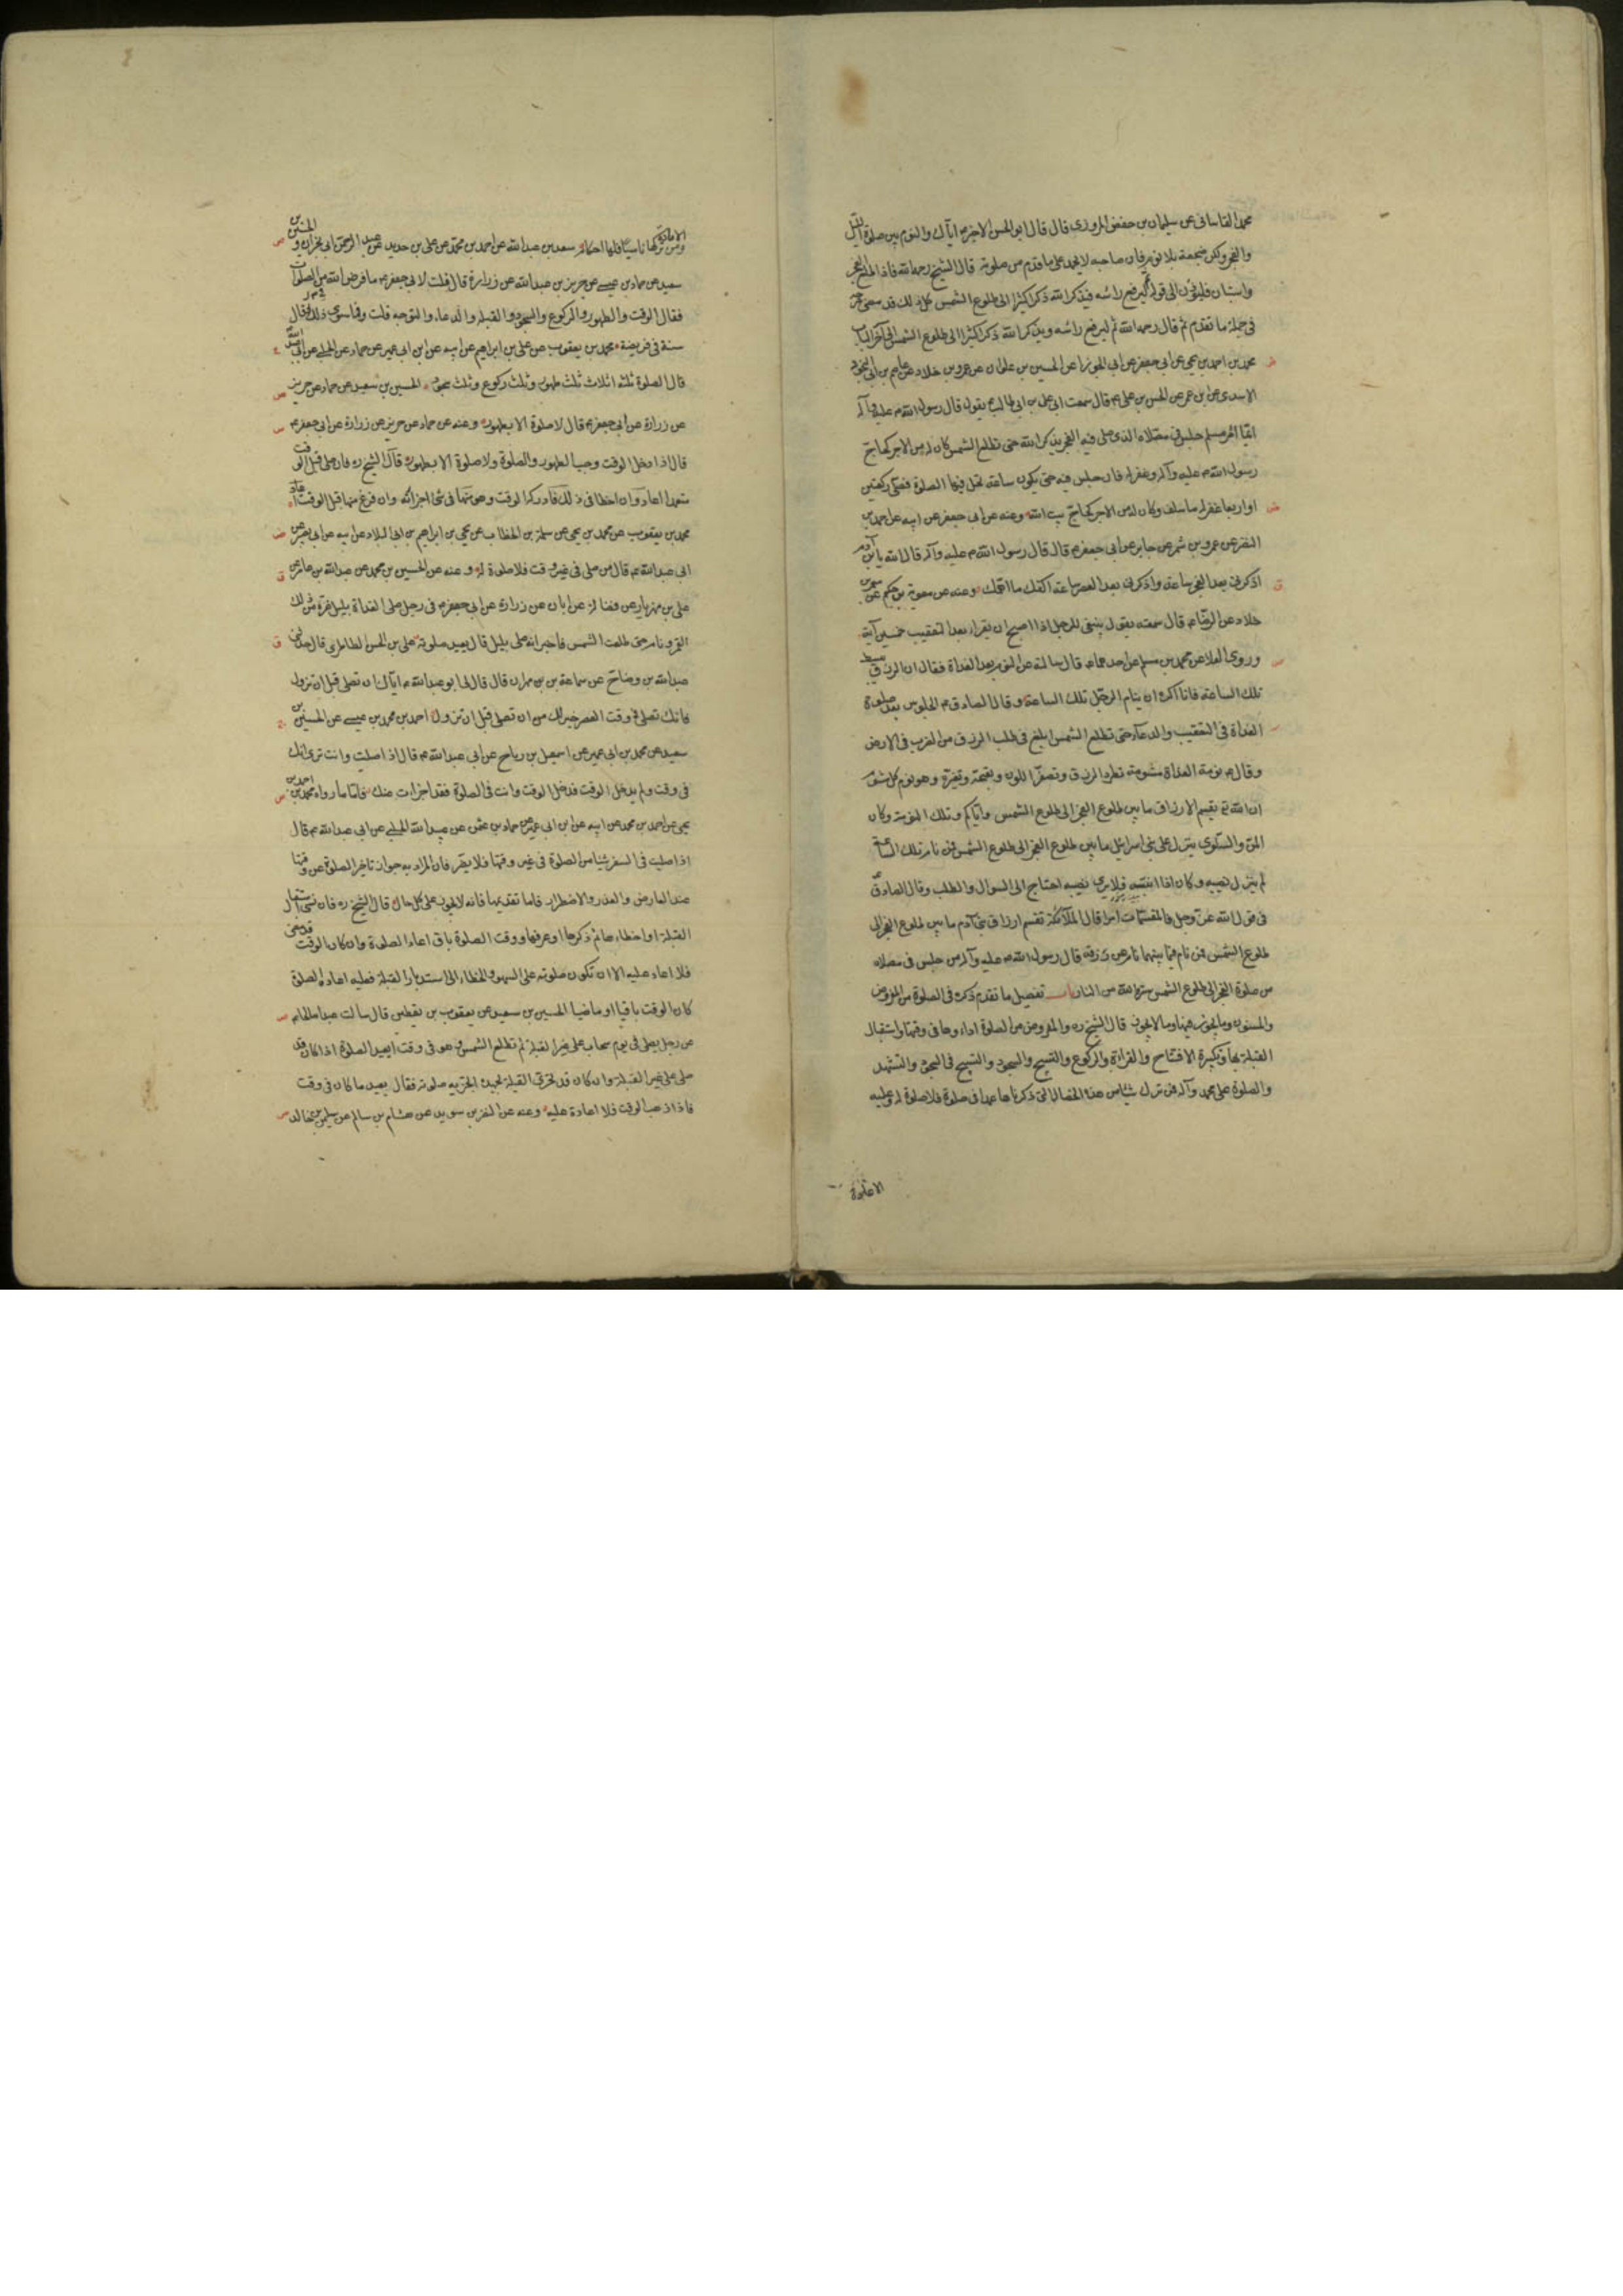 محمد القاسانى عن سليمان بن حفص المروزى قال قال ابو الحسن الاخير ع اياك والنوم بين صلوة الليل
والفجر ولكن ضجعة بلا نوم فان صاحبه لا يحمد على ما قدم من صلوته قال الشيخ رحمه الله فاذا طلع الفجر
واستبان فليؤذن الى قوله ثم ليرفع راسه فيذكر الله ذكرا كثيرا الى طلوع الشمس كل ذلك قد مضى شرحه
فى جملة ما تقدم ثم قال رحمه الله ثم ليرفع راسه ويذكر الله ذكرا كثيرا الى طلوع الشمس الى آخر الباب
محمد بن احمد بن يحيى عن ابى جعفر عن ابى الجوزا عن الحسين بن علوان عن عمرو بن خلاد عن عاصم بن ابى النجود
الاسدى عن ابن عمر عن الحسن بن على ع قال سمعت ابى على بن ابى طالب ع يقول قال رسول الله ص عليه وآله
ايما امرء مسلم جلس فى مصلاه الذى صلى فيه الفجر يذكر الله حتى تطلع الشمس كان له من الاجر كحاج
رسول الله ص عليه وآله وغفر له فان جلس فيه حتى يكون ساعة تحل فيها الصلوة فصلى ركعتين
او اربعا غفر له ما سلف وكان له من الاجر كحاج بيت الله وعنه عن ابى جعفر عن ابيه عن احمد بن
النضر عن عمرو بن شمر عن جابر عن ابى جعفر ع قال قال رسول الله ص عليه وآله قال الله يا بن آدم
اذكرنى بعد الفجر ساعة واذكرنى بعد العصر ساعة اكفك ما اهمك وعنه عن معوية بن حكيم عن معمر بن
خلاد عن الرضا ع قال سمعته يقول ينبغى للرجل اذا اصبح ان يقرا بعد التعقيب خمسين آية
وروى العلا عن محمد بن مسلم عن احدهما ع قال سالته عن النوم بعد الغداة فقال ان الرزق يبسط
تلك الساعة فانا اكره ان ينام الرجل تلك الساعة وقال الصادق ع الجلوس بعد صلوة
الغداة فى التعقيب والدعاء حتى تطلع الشمس ابلغ فى طلب الرزق من الضرب فى الارض
وقال ع نومة الغداة مشومة تطرد الرزق وتصفر اللون وتقبحه وتغيره وهو نوم كل مشوم
ان الله تع يقسم الارزاق ما بين طلوع الفجر الى طلوع الشمس واياكم وتلك النومة وكان
المن والسلوى ينزل على بنى اسرائيل ما بين طلوع الفجر الى طلوع الشمس فمن نام تلك الساعة
لم ينزل نصيبه وكان اذا انتبه فلا يرى نصيبه احتاج الى السوال والطلب وقال الصادق ع
فى قول الله عز وجل فالمقسمات امرا قال الملائكة تقسم ارزاق بنى آدم ما بين طلوع الفجر الى
طلوع الشمس فمن نام فيما بينهما نام عن رزقه قال رسول الله ص عليه وآله من جلس فى مصلاه
من صلوة الفجر الى طلوع الشمس ستره الله من النار باب تفصيل ما تقدم ذكره فى الصلوة من المفروض
والمسنون وما يجوز فيها وما لا يجوز قال الشيخ ره والمفروض من الصلوة اداءوها فى وقتها واستقبال
القبلة بها وتكبيرة الافتتاح والقراءة والركوع والتسبيح والسجود والتسبيح فى السجود والتشهد
والصلوة على محمد وآله فمن ترك شيئا من هذه الخصال التى ذكرناها عمدا فى صلوة فلا صلوة له وعليه
الاعادة
الاعادة ومن تركها ناسيا فلها احكام سعد بن عبد الله عن احمد بن محمد عن على بن حديد عن عبد الرحمن ابى نجران والحسين بن
سعيد عن حماد بن عيسى عن حريز بن عبد الله عن زرارة قال قلت لابى جعفر ع ما فرض الله من الصلوات
فقال الوقت والطهور والركوع والسجود والقبلة والدعاء والتوجه قلت وما سوى ذلك فقال
سنة فى فريضة محمد بن يعقوب عن على بن ابراهيم عن ابيه عن ابن ابى عمير عن حماد عن الحلبى عن ابى عبد الله
قال الصلوة ثلثة اثلاث ثلث طهور وثلث ركوع وثلث سجود الحسين بن سعيد عن حماد عن حريز
عن زرارة عن ابى جعفر ع قال لا صلوة الا بطهور وعنه عن حماد عن حريز عن زرارة عن ابى جعفر ع
قال اذا دخل الوقت وجب الطهور والصلوة ولا صلوة الا بطهور قال الشيخ ره فان صلى قبل الوقت
متعمدا اعاد وان اخطا فى ذلك فادركه الوقت وهو منها فى شئ اجزاته وان فرغ منها قبل الوقت اعاد
محمد بن يعقوب عن محمد بن يحيى عن سلمة بن الخطاب عن يحيى بن ابراهيم بن ابى البلاد عن ابيه عن ابى بصير عن
ابى عبد الله ع قال من صلى فى غير وقت فلا صلوة له وعنه عن الحسين بن محمد عن عبد الله بن عامر عن
على بن مهزيار عن فضالة عن ابان عن زرارة عن ابى جعفر ع فى رجل صلى الغداة بليل غره من ذلك
القمر ونام حتى طلعت الشمس فاخبر انه صلى بليل قال يعيد صلوته على بن الحسن الطاطرى قال حدثنى
عبد الله بن وضاح عن سماعة بن مهران قال قال لى ابو عبد الله ع اياك ان تصلى قبل ان تزول
فانك تصلى فى وقت العصر خير لك من ان تصلى قبل ان تزول احمد بن محمد بن عيسى عن الحسين بن
سعيد عن محمد بن ابى عمير عن اسمعيل بن رباح عن ابى عبد الله ع قال اذا صليت وانت ترى انك
فى وقت ولم يدخل الوقت فدخل الوقت وانت فى الصلوة فقد اجزات عنك فاما ما رواه محمد بن احمد بن
يحيى عن احمد بن محمد عن ابيه عن ابن ابى عمير عن حماد بن عثمن عن عبيد الله الحلبى عن ابى عبد الله ع قال
اذا صليت فى السفر شيئا من الصلوة فى غير وقتها فلا يضر فان المراد به جواز تاخير الصلوة عن وقتها
عند العارض والعذر والاضطرار فاما تقديمها فانه لا يجوز على كل حال قال الشيخ ره فان نسى استقبال
القبلة او اخطاءها ثم ذكرها او عرفها ووقت الصلوة باق اعاد الصلوة وان كان الوقت قد مضى
فلا اعادة عليه الا ان تكون صلوته على السهو والخطاء الى استدبار القبلة فعليه اعادة الصلوة
كان الوقت باقيا او ماضيا الحسين بن سعيد عن يعقوب بن يقطين قال سالت عبدا صالحا ع
عن رجل يصلى فى يوم سحاب على غير القبلة ثم تطلع الشمس وهو فى وقت ايعيد الصلوة اذا كان قد
صلى على غير القبلة وان كان قد تحرى القبلة بجهده اتجزيه صلوته فقال يعيد ما كان فى وقت
فاذا ذهب الوقت فلا اعادة عليه وعنه عن النضر بن سويد عن هشام بن سالم عن سليمن بن خالد